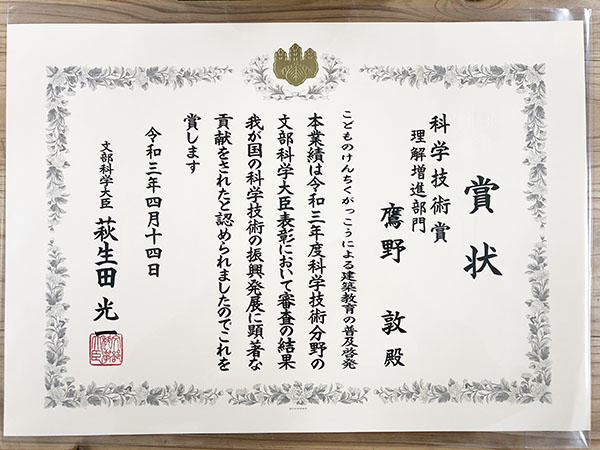 賞状
科学技術賞
理解増進部門
鷹野 敦 殿
こどものけんちくがっこうによる建築教育の普及啓発
本業績は令和三年度科学技術分野の
文部科学大臣表彰において審査の結果
我が国の科学技術の振興発展に顕著な
貢献をされたと認められましたのでこれを
賞します
令和三年四月十四日
文部科学大臣 萩生田 光一